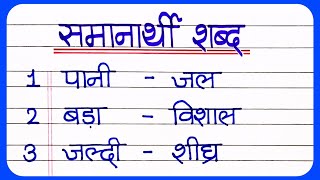 समानार्थी शब्द
1 पानी - जल
2 बड़ा - विशाल
3 जल्दी - शीघ्र